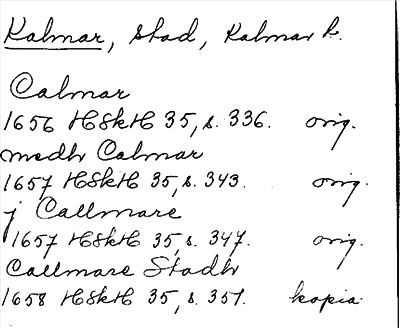 Kalmar, stad, Kalmar k.
Calmar
1656 HSkH 35, s. 336. orig.
medh Calmar
1657 HSkH 35, s. 343. orig.
j Callmare
1657 HSkH 35, s. 347. orig.
Callmare Stadh
1658 HSkH 35, s. 351. kopia